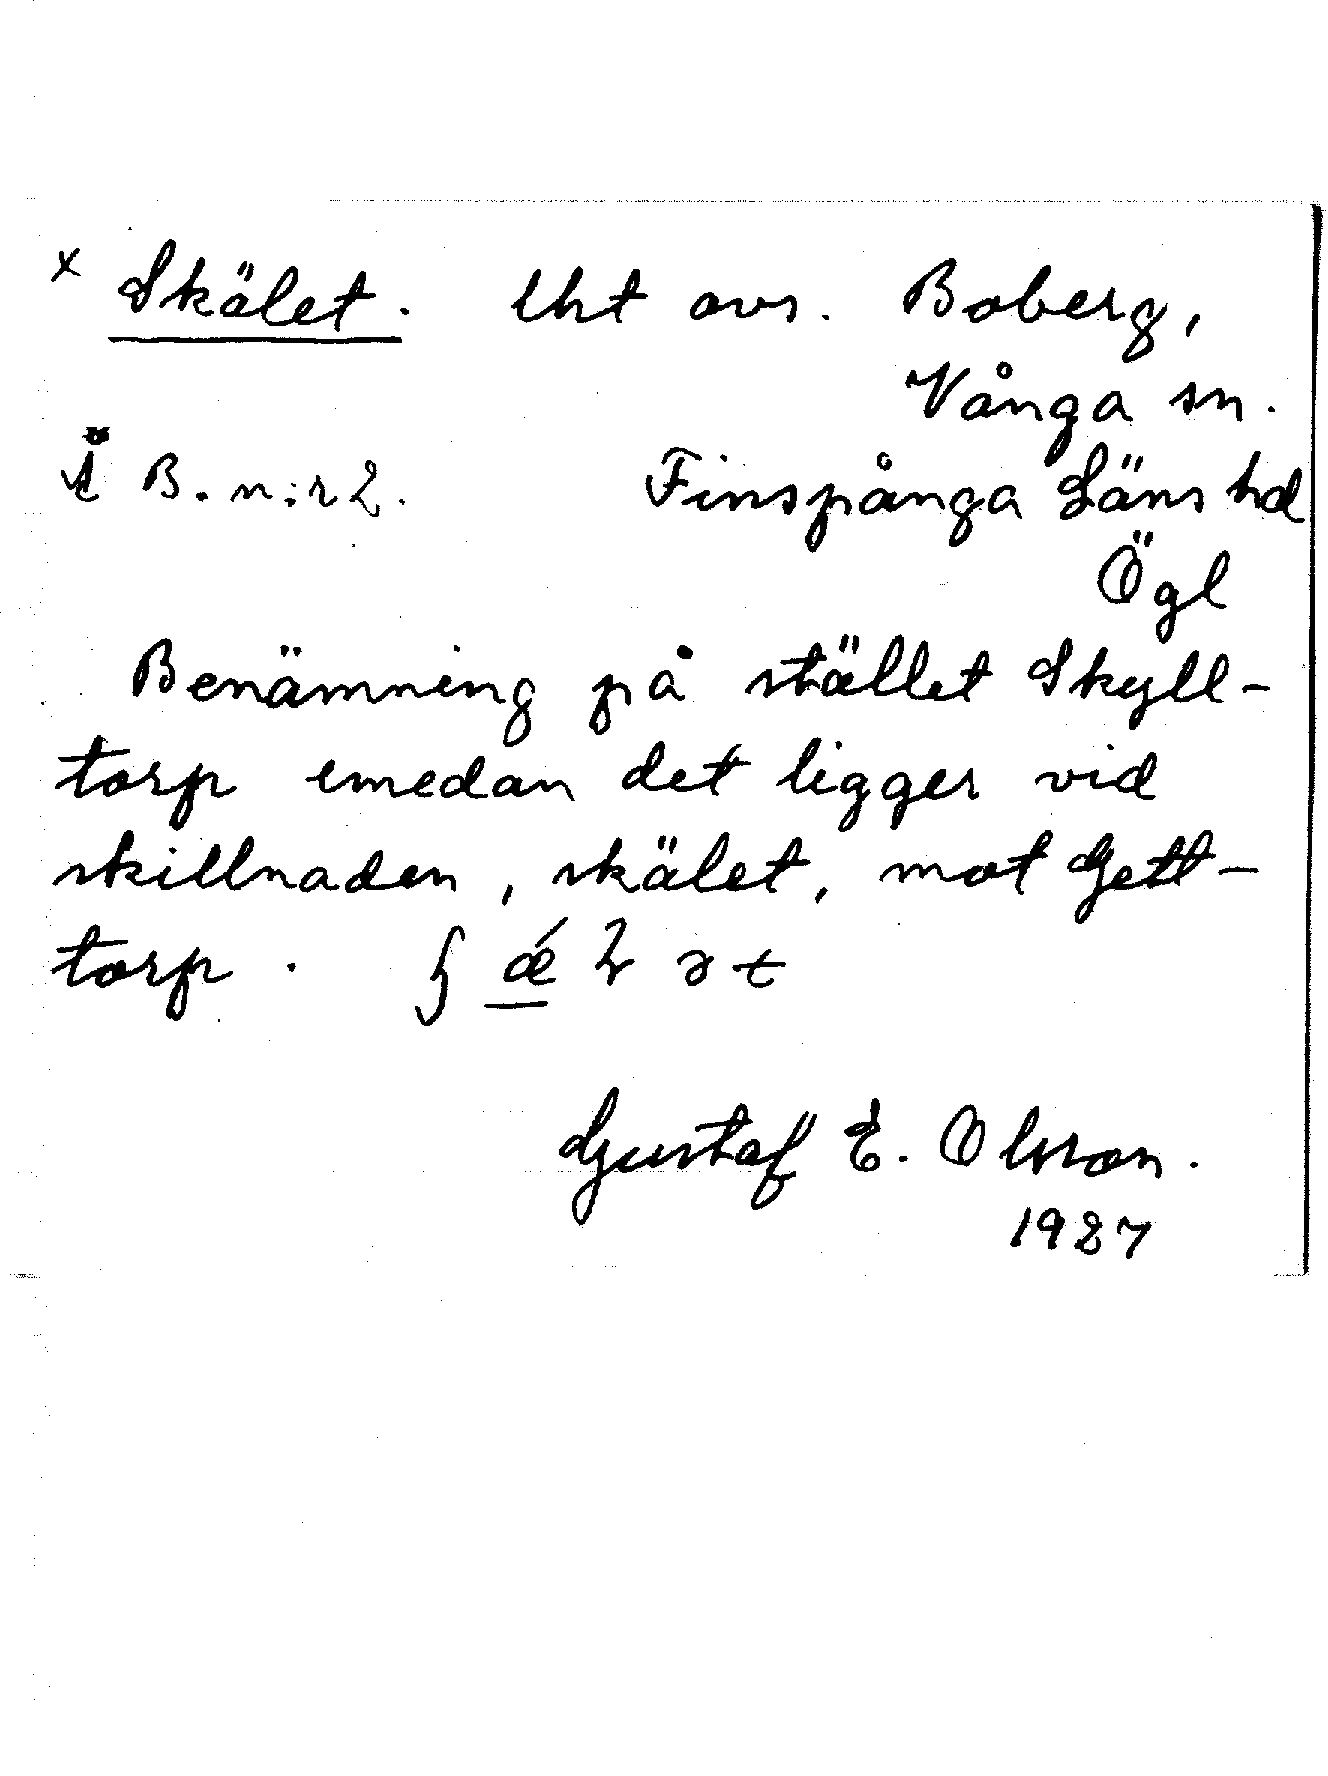 x Skälet. Uht avs. Boberg,
Vånga sn.
Å B. n:r 2. Finspånga Läns hd
Ögl
Benämning på stället Skyll-
torp emedan det ligger vid
skillnaden, skälet, mot Gett-
torp.
Gustaf E. Olsson.
1927